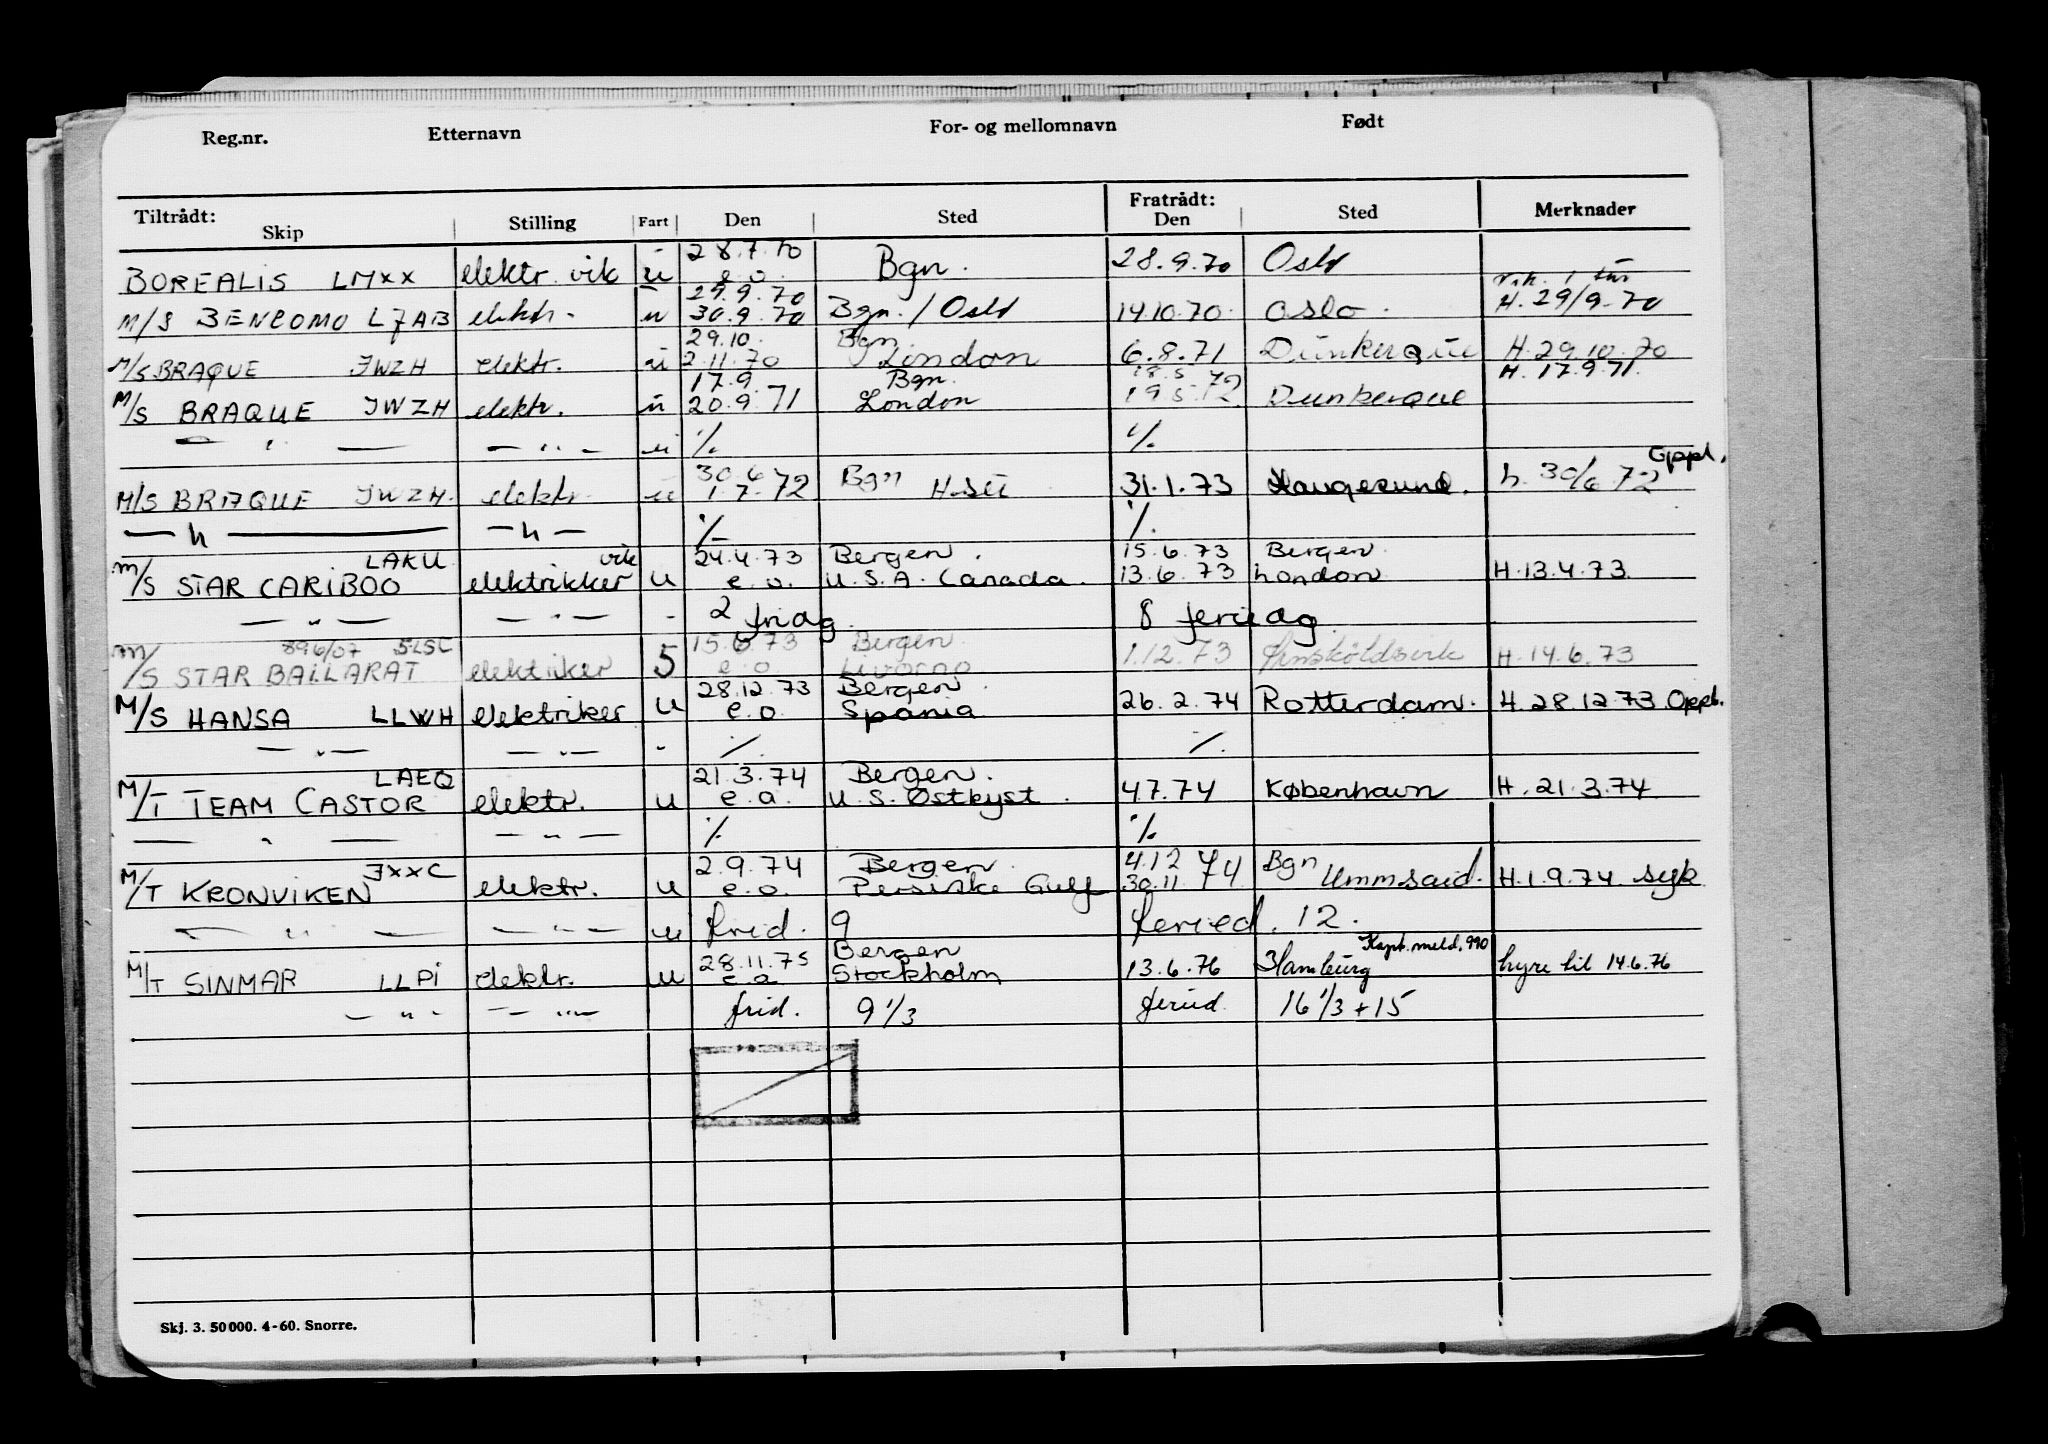 Reg.nr. Etternavn For- og mellomnavn Født
Tiltrådt: Fratrådt:
Skip Stilling Fart Den Sted Den Sted Merknader
28.7.70
BOREALIS LMXX elektr. vik u e.o. Bgn. 28.9.70 Oslo vik. 1 tur
29.9.70
M/S BENCOMO LJAB elektr. u 30.9.70 Bgn./Oslo 14.10.70 Oslo. H. 29/9-70
29.10. Bgn.
M/S BRAQUE JWZH elektr. u 2.11.70 London 6.8.71 Dunkerque H. 29.10.70
17.9. Bgn. 18.5.72 H. 17.9.71.
M/S BRAQUE JWZH elektr. u 20.9.71 London 19.5.72 Dunkerque
— " — — " — u % %
30.6 Bgn Oppl.
M/S BRAQUE JWZH. elektr. u 1.7.72 H.sei 31.1.73 Haugesund. h. 30/6 72
— " — — " — % %
LAKU vik 24.4.73 Bergen. 15.6.73 Bergen.
M/S STAR CARIBOO elektrikker u e.o. U.S.A. Canada. 13.6.73 London H.13.4.73.
— " — — " — - 2 fridag. 8 feriedag.
896/07 5LSC 15.6.73 Bergen.
M/S STAR BALLARAT elektriker 5 e.o. Livorno 1.12.73 H.14.6.73
28.12.73 Bergen.
M/S HANSA LLWH elektriker u e.o. Spania 26.2.74 Rotterdam. H.28.12.73 Oppl.
— " — — " — - % %
LAEQ 21.3.74 Bergen.
M/T TEAM CASTOR elektr. u e.o. U.S. Østkyst. 4.7.74 København H.21.3.74
— " — — " — % %
JXXC 2.9.74 Bergen. 4.12 Bgn
M/T KRONVIKEN elektr. u e.o. Persiske Gulf 30.11.74 Ummsaid. H.1.9.74. syk
— " — — " — u frid. 9 feried. 12.
28.11.75 Bergen Kapt. meld. 990
M/T SINMAR LLPI elektr. u e.o. Stockholm 13.6.76 Hamburg hyre til 14.6.76
— " - — " — frid. 9 1/3 feried. 16 1/3 + 15
Skj. 3. 50 000. 4-60. Snorre.